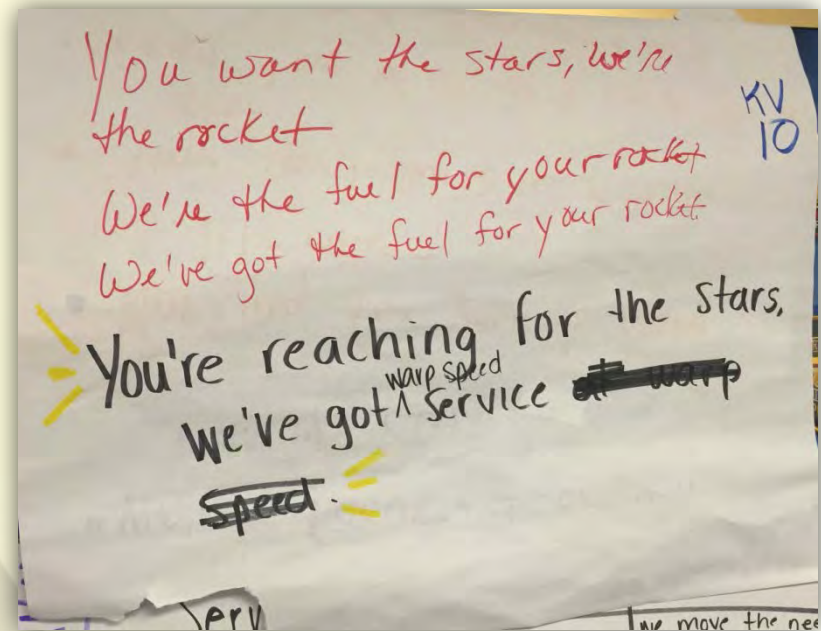 You want the stars, we're
the rocket
KV
10
We're the fuel for your rocket
We've got the fuel for your rocket
You're reaching for the stars,
we've got ^ warp speed service at warp
speed.
serv
we move the nee